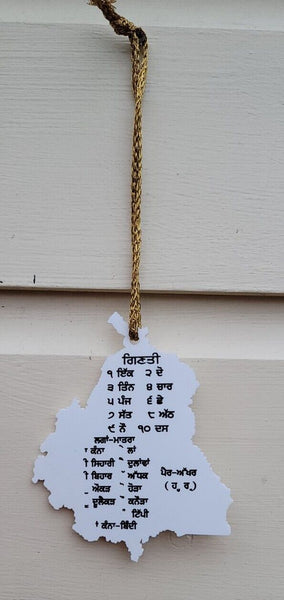 ਗਿਣਤੀ
੧ ਇੱਕ ੨ ਦੋ
੩ ਤਿੰਨ ੪ ਚਾਰ
੫ ਪੰਜ ੬ ਛੇ
੭ ਸੱਤ ੮ ਅੱਠ
੯ ਨੌ ੧੦ ਦਸ
ਲਗਾਂ-ਮਾਤਰਾ
ਾ ਕੰਨਾ ੇ ਲਾਂ
ਿ ਸਿਹਾਰੀ ੈ ਦੁਲਾਵਾਂ
ੀ ਬਿਹਾਰ ੱ ਅੱਧਕ
ੁ ਔਕੜ ੋ ਹੋੜਾ
ੂ ਦੁਲੈਕੜ ੌ ਕਨੌੜਾ
ੰ ਟਿੱਪੀ
ਾਂ ਕੰਨਾ-ਬਿੰਦੀ
ਪੈਰ-ਅੱਖਰ